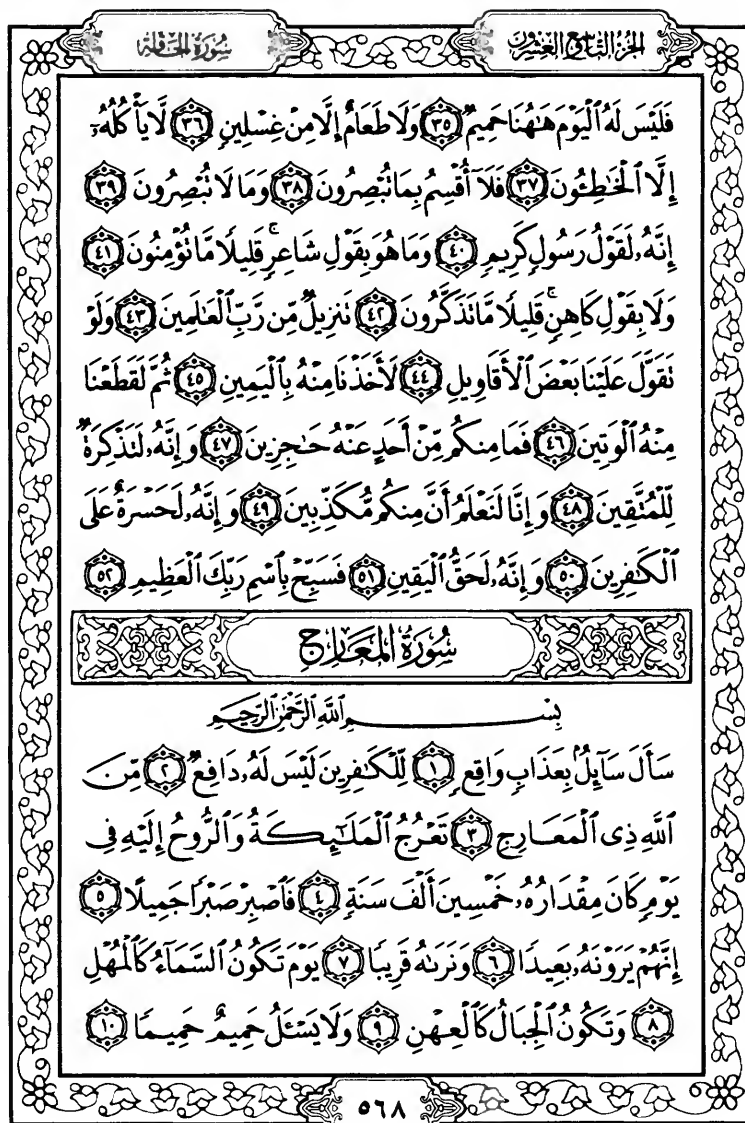 الجزء التاسع العشرون
سُورَةُ الحَاقَّة
فَلَيْسَ لَهُ ٱلْيَوْمَ هَٰهُنَا حَمِيمٌ ٣٥ وَلَا طَعَامٌ إِلَّا مِنْ غِسْلِينٍ ٣٦ لَّا يَأْكُلُهُۥٓ
إِلَّا ٱلْخَٰطِـُٔونَ ٣٧ فَلَآ أُقْسِمُ بِمَا تُبْصِرُونَ ٣٨ وَمَا لَا تُبْصِرُونَ ٣٩
إِنَّهُۥ لَقَوْلُ رَسُولٍ كَرِيمٍ ٤٠ وَمَا هُوَ بِقَوْلِ شَاعِرٍ ۚ قَلِيلًا مَّا تُؤْمِنُونَ ٤١
وَلَا بِقَوْلِ كَاهِنٍ ۚ قَلِيلًا مَّا تَذَكَّرُونَ ٤٢ تَنزِيلٌ مِّن رَّبِّ ٱلْعَٰلَمِينَ ٤٣ وَلَوْ
تَقَوَّلَ عَلَيْنَا بَعْضَ ٱلْأَقَاوِيلِ ٤٤ لَأَخَذْنَا مِنْهُ بِٱلْيَمِينِ ٤٥ ثُمَّ لَقَطَعْنَا
مِنْهُ ٱلْوَتِينَ ٤٦ فَمَا مِنكُم مِّنْ أَحَدٍ عَنْهُ حَٰجِزِينَ ٤٧ وَإِنَّهُۥ لَتَذْكِرَةٌ
لِّلْمُتَّقِينَ ٤٨ وَإِنَّا لَنَعْلَمُ أَنَّ مِنكُم مُّكَذِّبِينَ ٤٩ وَإِنَّهُۥ لَحَسْرَةٌ عَلَى
ٱلْكَٰفِرِينَ ٥٠ وَإِنَّهُۥ لَحَقُّ ٱلْيَقِينِ ٥١ فَسَبِّحْ بِٱسْمِ رَبِّكَ ٱلْعَظِيمِ ٥٢
سُورَةُ المَعَارِجِ
بِسْمِ ٱللَّهِ ٱلرَّحْمَٰنِ ٱلرَّحِيمِ
سَأَلَ سَآئِلٌۢ بِعَذَابٍ وَاقِعٍ ١ لِّلْكَٰفِرِينَ لَيْسَ لَهُۥ دَافِعٌ ٢ مِّنَ
ٱللَّهِ ذِى ٱلْمَعَارِجِ ٣ تَعْرُجُ ٱلْمَلَٰٓئِكَةُ وَٱلرُّوحُ إِلَيْهِ فِى
يَوْمٍ كَانَ مِقْدَارُهُۥ خَمْسِينَ أَلْفَ سَنَةٍ ٤ فَٱصْبِرْ صَبْرًا جَمِيلًا ٥
إِنَّهُمْ يَرَوْنَهُۥ بَعِيدًا ٦ وَنَرَىٰهُ قَرِيبًا ٧ يَوْمَ تَكُونُ ٱلسَّمَآءُ كَٱلْمُهْلِ
٨ وَتَكُونُ ٱلْجِبَالُ كَٱلْعِهْنِ ٩ وَلَا يَسْـَٔلُ حَمِيمٌ حَمِيمًا ١٠
٥٦٨